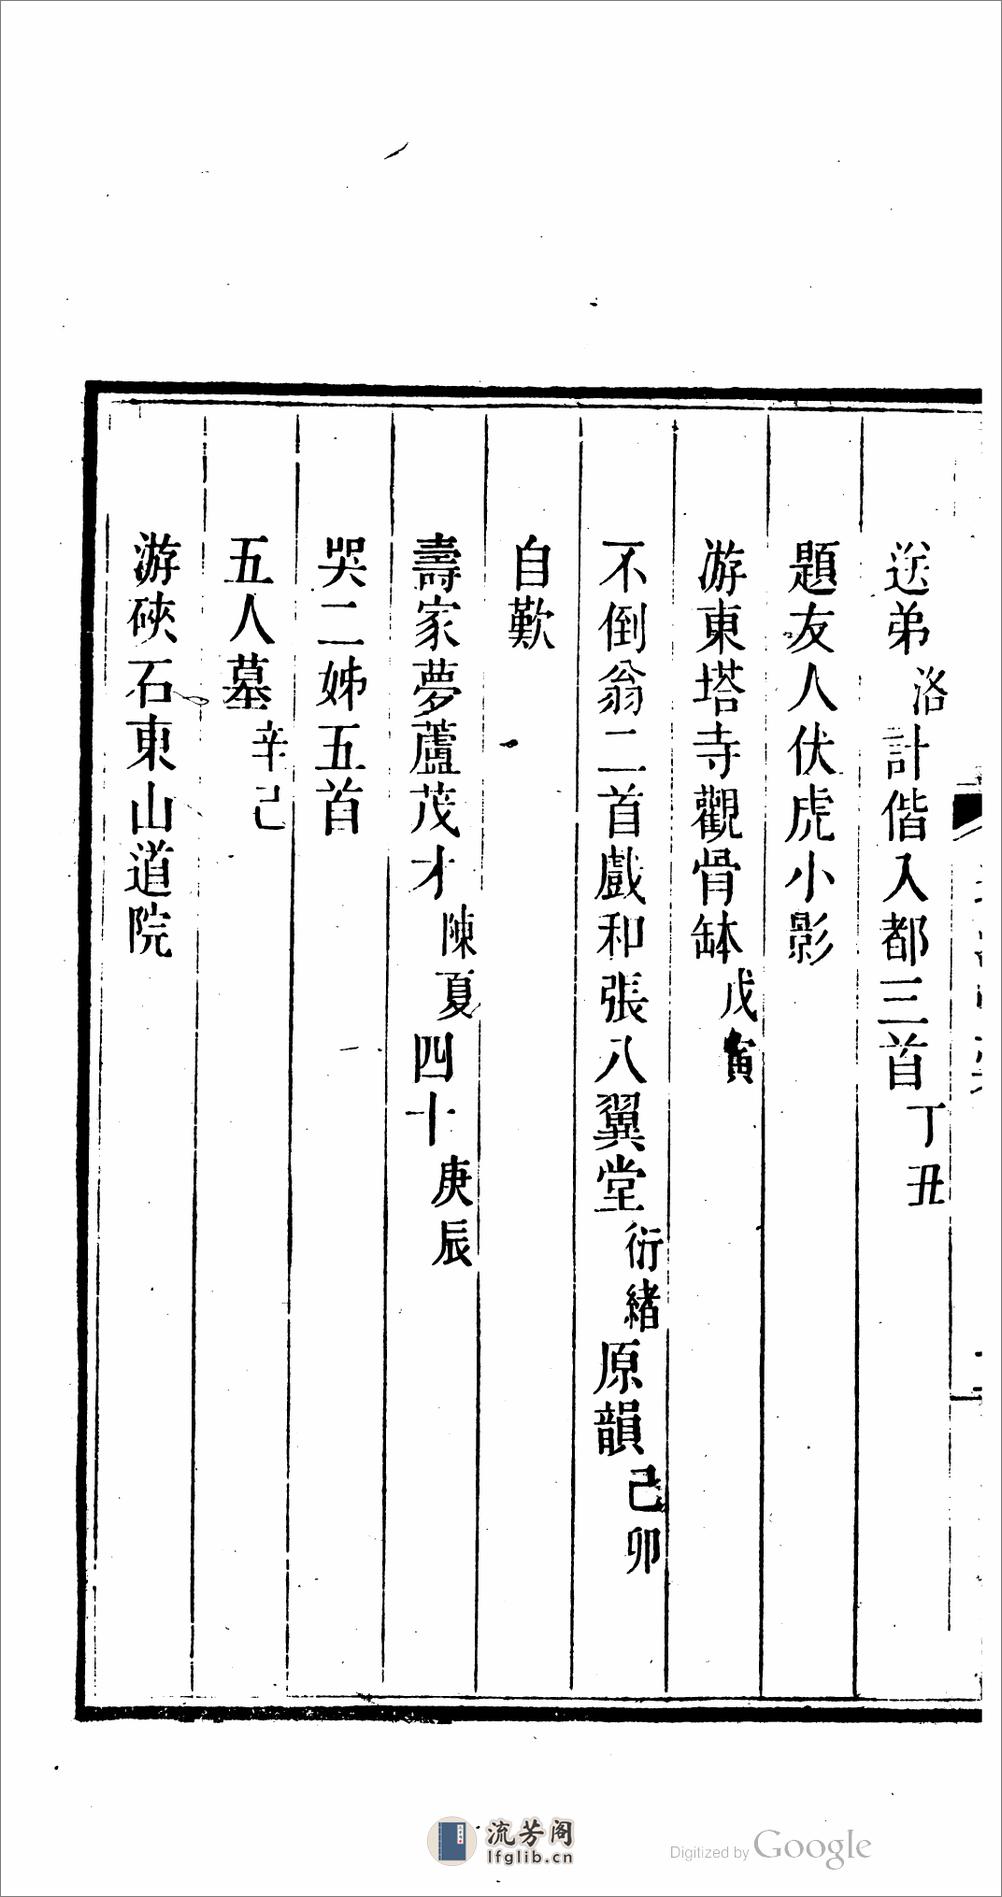 送弟洛計偕入都三首丁丑
題友人伏虎小影
游東塔寺觀骨缽戊寅
不倒翁二首戲和張八翼堂衍緒原韻己卯
自歎
壽家夢蘆茂才陳夏四十庚辰
哭二姊五首
五人墓辛己
游硤石東山道院
流芳阁
lfglib.cn
Digitized by Google